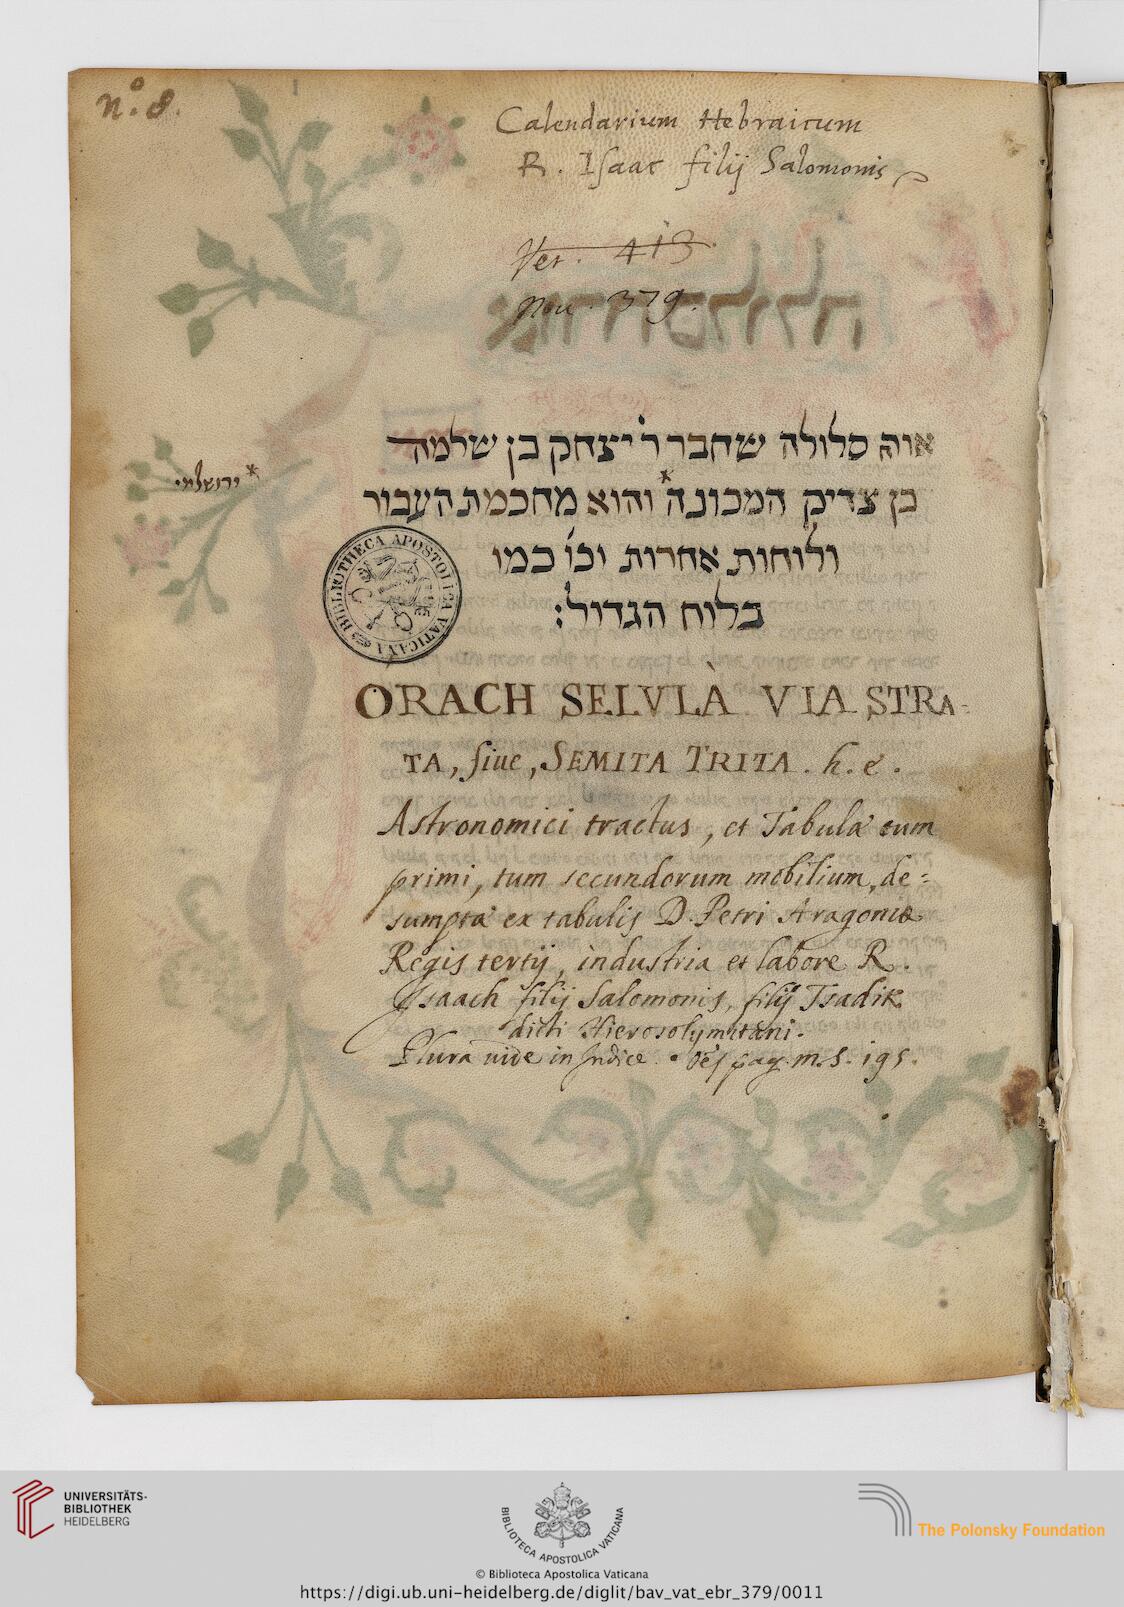 nº. 8.
Calendarium Hebraicum
R. Isaac filij Salomonis
Vet. 413.
Nou. 379.
אורח סלולה שחבר ר' יצחק בן שלמה
בן צדיק המכונה * והוא מחכמת העבור
* ירושלמי
ולוחות אחרות וכו' כמו
בלוח הגדול:
BIBLIOTHECA APOSTOLICA VATICANA
ORACH SELVLÀ VIA STRA-
TA, siue, SEMITA TRITA. h. e.
Astronomici tractus, et Tabulæ tum
primi, tum secundorum mobilium, de=
sumptæ ex tabulis D. Petri Aragoniæ
Regis tertij, industria et labore R.
Isaach filij Salomonis, filij Tsadik
dicti Hierosolymitani.
Plura vide in Indice. pag. m. s. 195.
UNIVERSITÄTS-
BIBLIOTHEK
HEIDELBERG
BIBLIOTECA APOSTOLICA VATICANA
The Polonsky Foundation
© Biblioteca Apostolica Vaticana
https://digi.ub.uni-heidelberg.de/diglit/bav_vat_ebr_379/0011